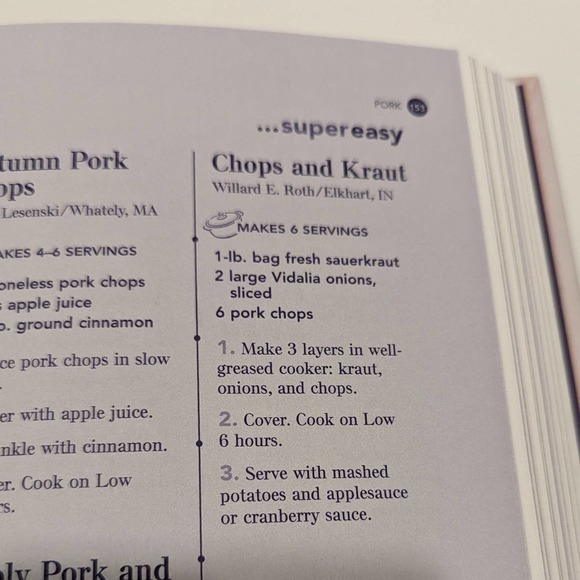 PORK 151
...supereasy
Pork
Lesenski/Whately, MA
4–6 SERVINGS
pork chops
apple juice
ground cinnamon
pork chops in slow
with apple juice.
with cinnamon.
Cook on Low
Pork and
Chops and Kraut
Willard E. Roth/Elkhart, IN
MAKES 6 SERVINGS
1-lb. bag fresh sauerkraut
2 large Vidalia onions,
sliced
6 pork chops
1. Make 3 layers in well-
greased cooker: kraut,
onions, and chops.
2. Cover. Cook on Low
6 hours.
3. Serve with mashed
potatoes and applesauce
or cranberry sauce.